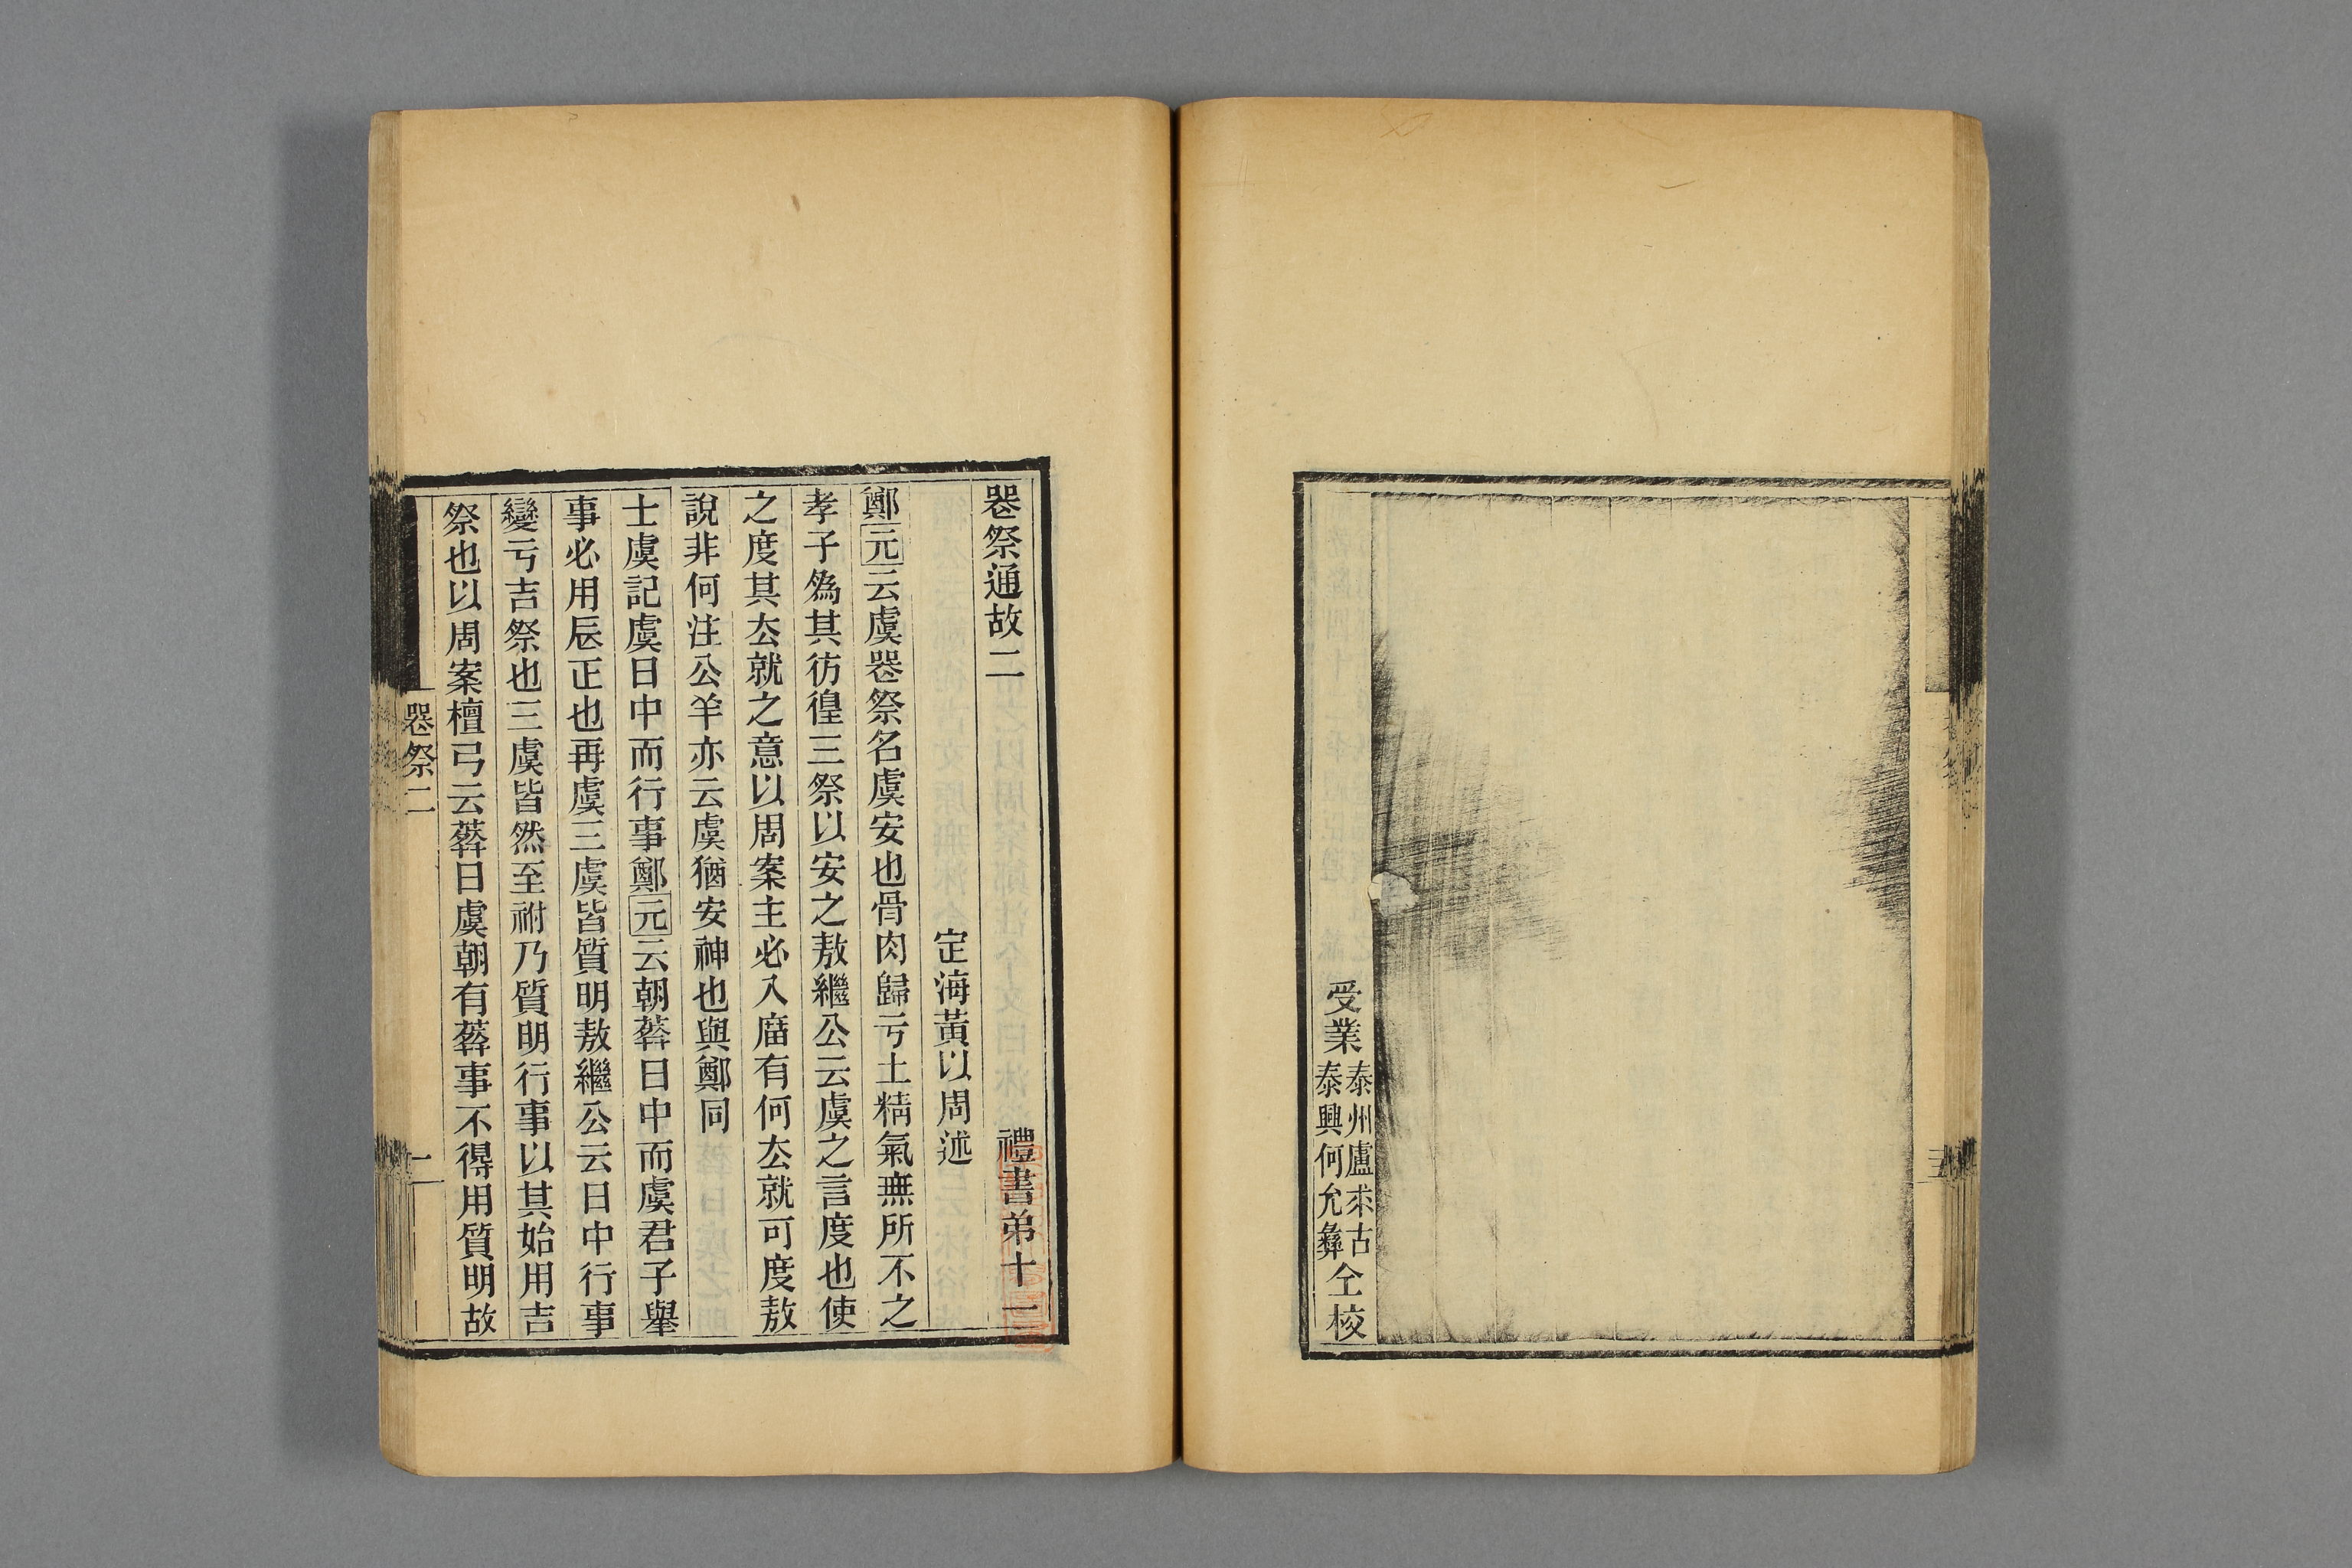 受業泰州盧求古泰興何允彝仝校
喪祭通故二 禮書弟十一
定海黃以周述
鄭元云虞喪祭名虞安也骨肉歸亏土精氣無所不之
孝子爲其彷徨三祭以安之敖繼公云虞之言度也使
之度其厺就之意以周案主必入庿有何厺就可度敖
說非何注公羊亦云虞猶安神也與鄭同
士虞記虞日中而行事鄭元云朝葬日中而虞君子舉
事必用辰正也再虞三虞皆質明敖繼公云日中行事
變亏吉祭也三虞皆然至祔乃質明行事以其始用吉
祭也以周案檀弓云葬日虞朝有葬事不得用質明故
喪祭二
二